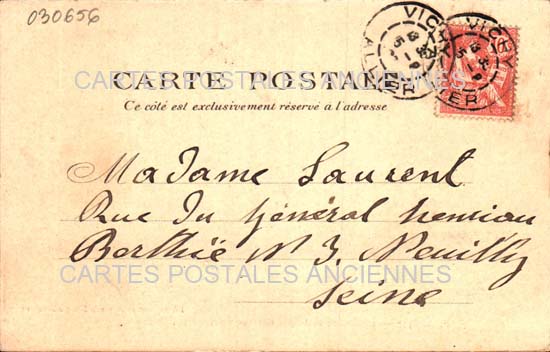 030656
CARTE POSTALE
Ce côté est exclusivement réservé à l'adresse
VICHY
ALLIER
VICHY
Madame Laurent
Rue du Général Henrion
Berthië N 3. Neuilly
Seine
CARTES POSTALES ANCIENNES
CARTES POSTALES ANCIENNES